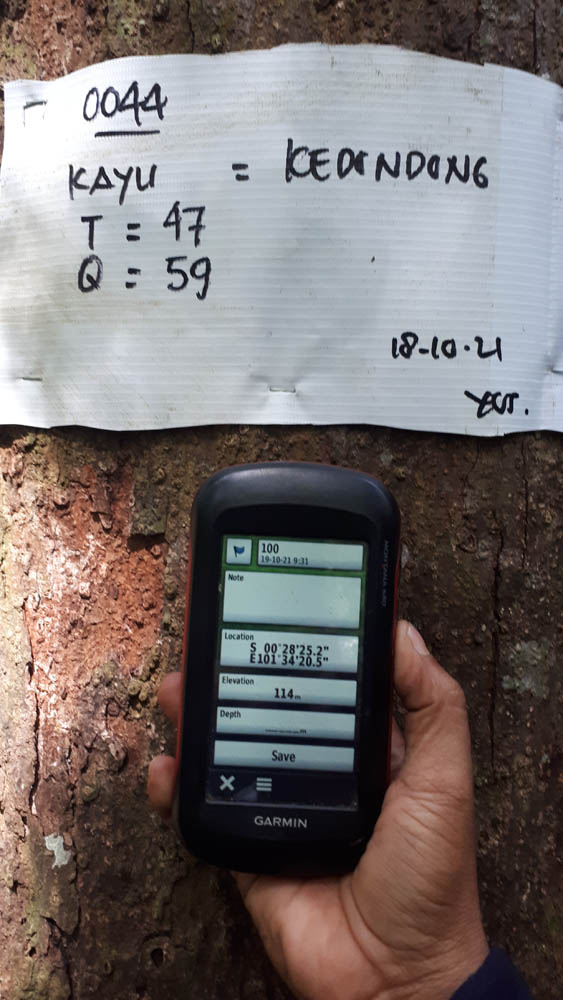 0044
KAYU = KEDONDONG
T = 47
Q = 59
18-10-21
100
19-10-21 9:31
Note
Location
S 00°28'25.2"
E101°34'20.5"
Elevation
114m
Depth
_____m
Save
GARMIN